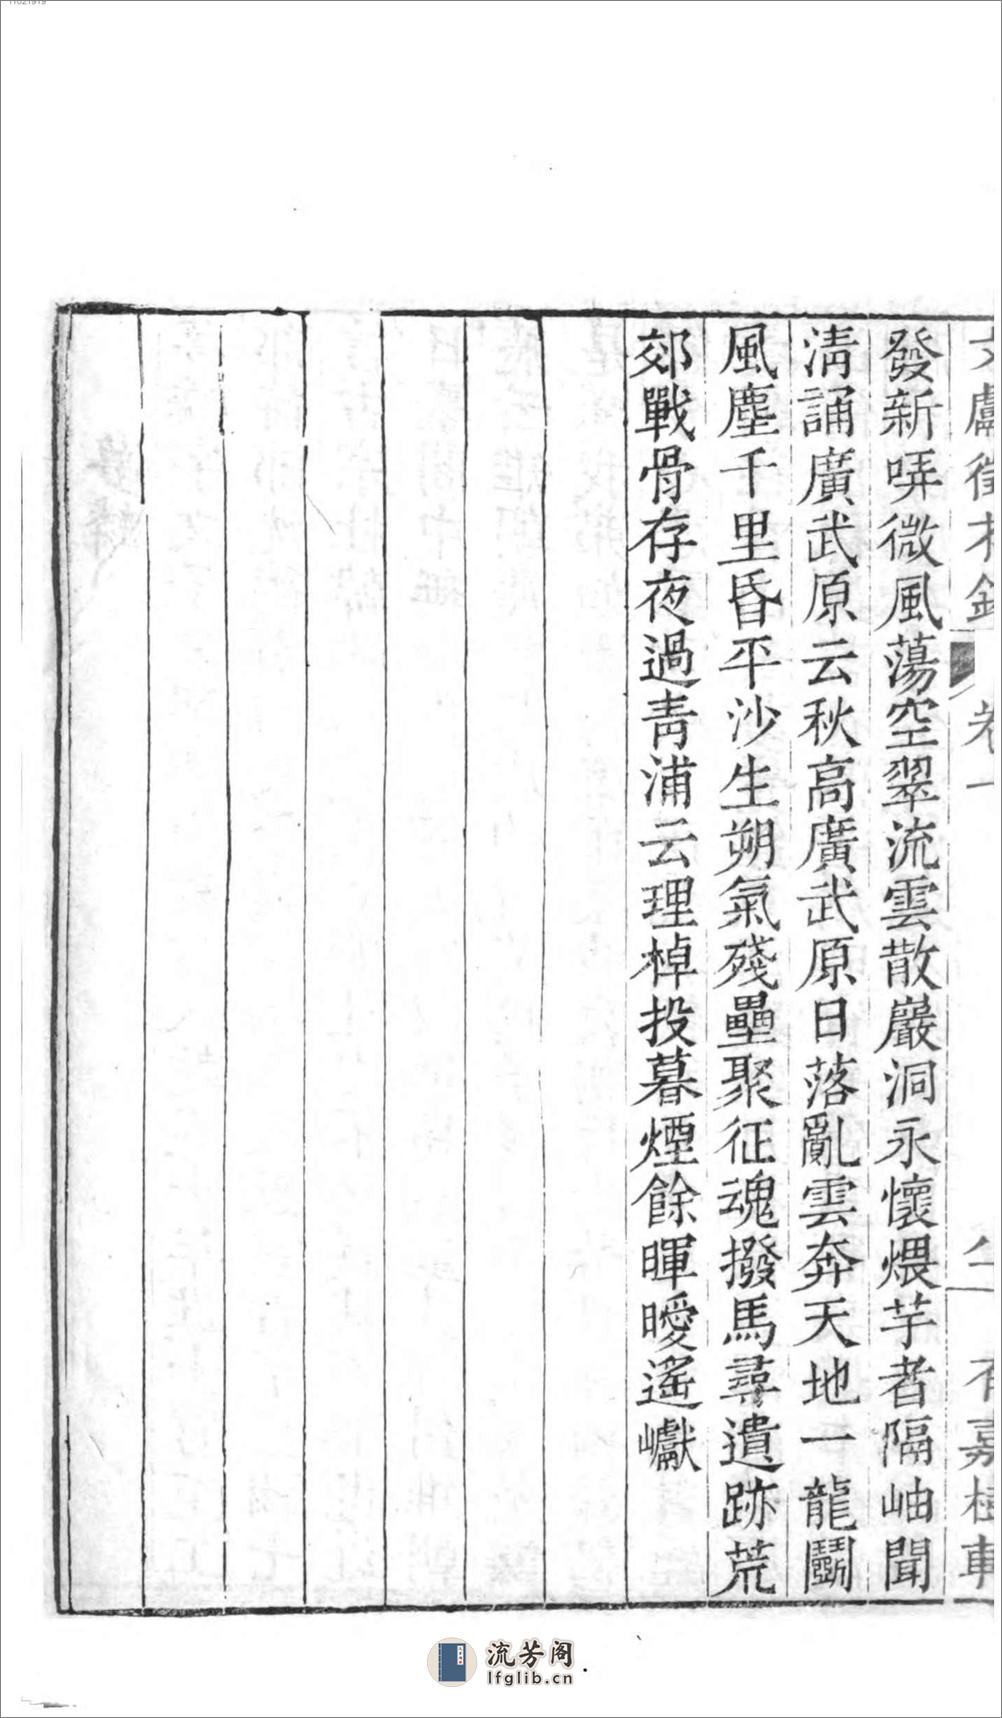 文獻徵存錄 卷一 八 有嘉樹軒
發新哢微風蕩空翠流雲散巖洞永懷煨芋者隔岫聞
淸誦廣武原云秋高廣武原日落亂雲奔天地一龍鬭
風塵千里昏平沙生朔氣殘壘聚征魂撥馬尋遺跡荒
郊戰骨存夜過靑浦云理棹投暮煙餘暉曖遙巘
流芳阁
lfglib.cn